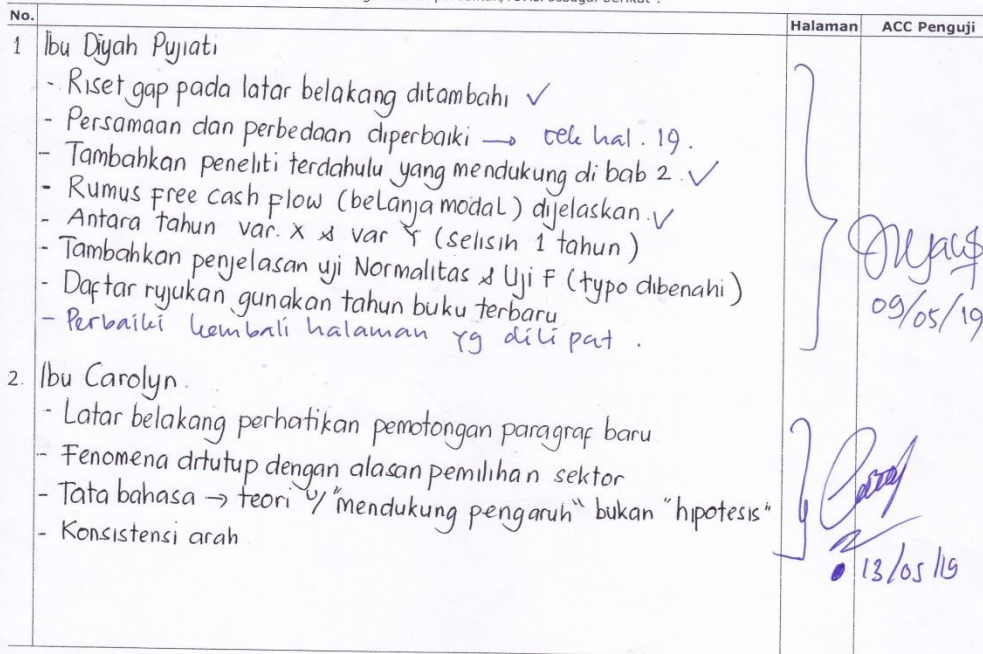 sebagai berikut :
No. Halaman ACC Penguji
1 Ibu Diyah Pujiati
- Riset gap pada latar belakang ditambahi ✓
- Persamaan dan perbedaan diperbaiki → cek hal. 19.
- Tambahkan peneliti terdahulu yang mendukung di bab 2 ✓
- Rumus Free cash flow (belanja modal) dijelaskan ✓
- Antara tahun var. X & var Y (selisih 1 tahun)
- Tambahkan penjelasan uji Normalitas & Uji F (typo dibenahi)
- Daftar rujukan gunakan tahun buku terbaru
- Perbaiki kembali halaman yg dilipat.
09/05/19
2. Ibu Carolyn.
- Latar belakang perhatikan pemotongan paragraf baru
- Fenomena ditutup dengan alasan pemilihan sektor
- Tata bahasa → teori u/ "mendukung pengaruh" bukan "hipotesis"
- Konsistensi arah
13/05/19